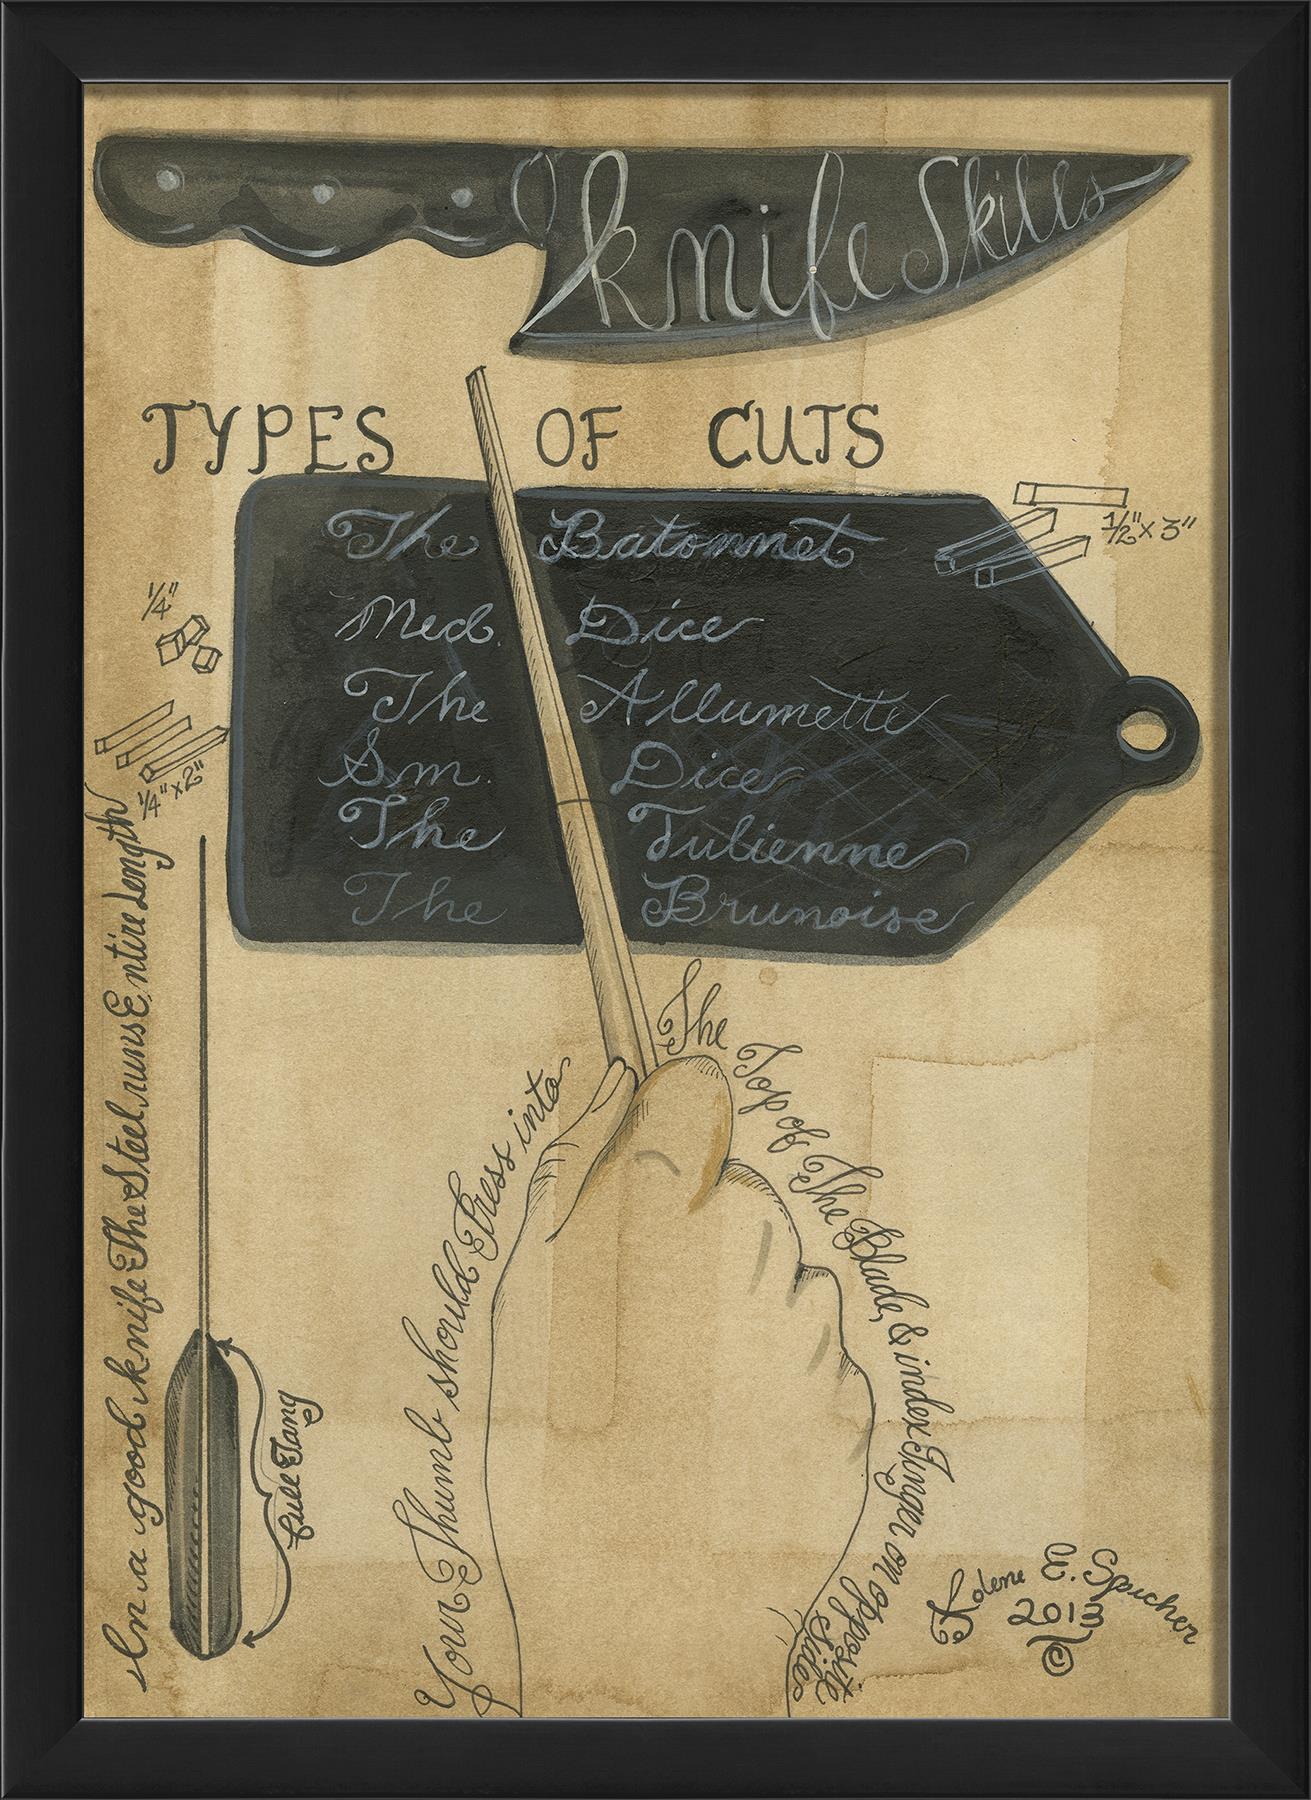 knife Skills
TYPES OF CUTS
The Batonnet
1/2" x 3"
Med. Dice
1/4"
The Allumette
1/4" x 2"
Sm. Dice
The Julienne
The Brunoise
In a good knife The Steel runs Entire Length
Full Tang
Your Thumb should Press into
The Top of The Blade, & index Finger on opposite
Side
Kolene E. Spicher
2013
©